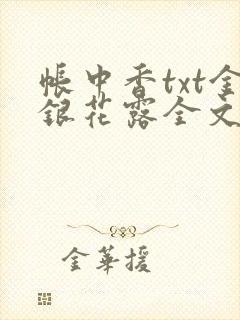 帐中香txt金
银花露全文
金華援